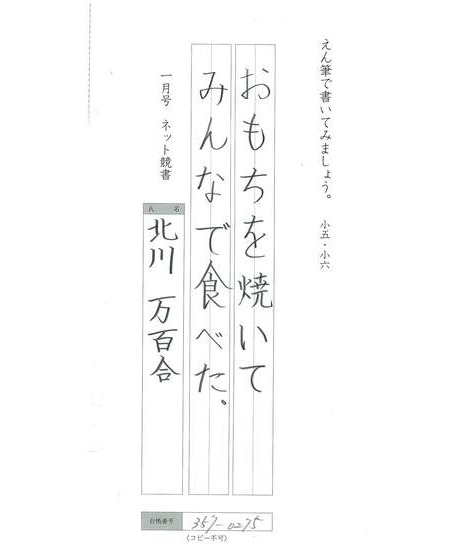 えん筆で書いてみましょう。 小五・小六
おもちを焼いて
みんなで食べた。
一月号 ネット競書
氏名
北川 万百合
台帳番号 357-0275
(コピー不可)